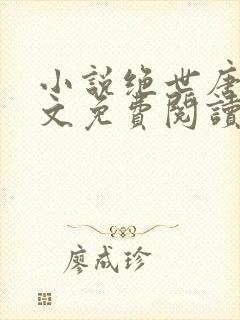 小說绝世唐
文免費閱讀
廖成珍